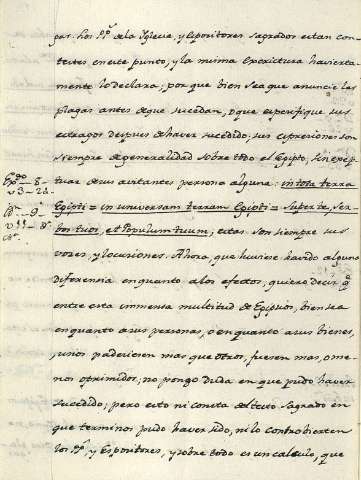 gas. Los PP.s de la Iglecia, y Expositores sagrados estan con-
textes en este punto, y la misma Excritura haviertа-
mente lo declara; por que bien sea que anuncie las
plagas antes de que sucedan, ò que especifique sus
estragos despues de haver sucedido; sus expresiones son
siempre de generalidad sobre todo el Egipto, sin excep-
tuar de sus avitantes persona alguna: in tota terra
Egipti = in universam terram Egipti = super te, ser-
bos tuos, et Populum tuum; estas son siempre sus
vozes, y locusiones. Ahora, que huviese havido alguna
diferensia en quanto a los efectos, quiero decir, q.e
entre esta immensa multitud de Egipsios, bien sea
en quanto a sus personas, o en quanto a sus bienes,
, unos padeciesen mas que otros, fuesen mas, o me-
nos oprimidos; no pongo duda en que pudo haver
sucedido; pero esto ni consta del texto sagrado en
que terminos pudo haver sido, ni lo controbierten
los PP.s, y Expositores, y sobre todo es un calculo, que
Exodo - 8 -